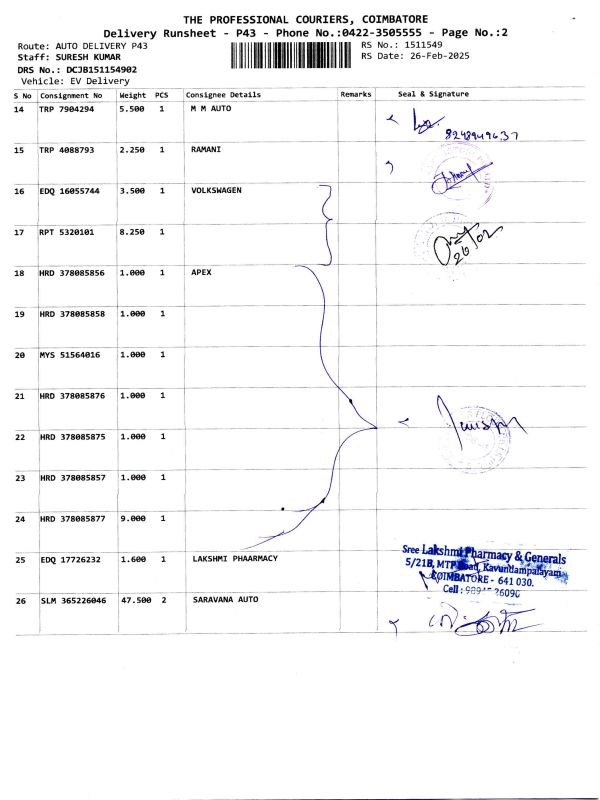 THE PROFESSIONAL COURIERS, COIMBATORE
Delivery Runsheet - P43 - Phone No.:0422-3505555 - Page No.:2
Route: AUTO DELIVERY P43 RS No.: 1511549
Staff: SURESH KUMAR RS Date: 26-Feb-2025
DRS No.: DCJB151154902
Vehicle: EV Delivery
S No Consignment No Weight PCS Consignee Details Remarks Seal & Signature
14 TRP 7904294 5.500 1 M M AUTO
15 TRP 4088793 2.250 1 RAMANI
16 EDQ 16055744 3.500 1 VOLKSWAGEN
17 RPT 5320101 8.250 1
26/02
18 HRD 378085856 1.000 1 APEX
19 HRD 378085858 1.000 1
20 MYS 51564016 1.000 1
21 HRD 378085876 1.000 1
22 HRD 378085875 1.000 1
23 HRD 378085857 1.000 1
24 HRD 378085877 9.000 1
25 EDQ 17726232 1.600 1 LAKSHMI PHAARMACY
Sree Lakshmi Pharmacy & Generals
5/21B, MTP Road, Kavundampalayam
COIMBATORE - 641 030.
Cell : 26090
26 SLM 365226046 47.500 2 SARAVANA AUTO